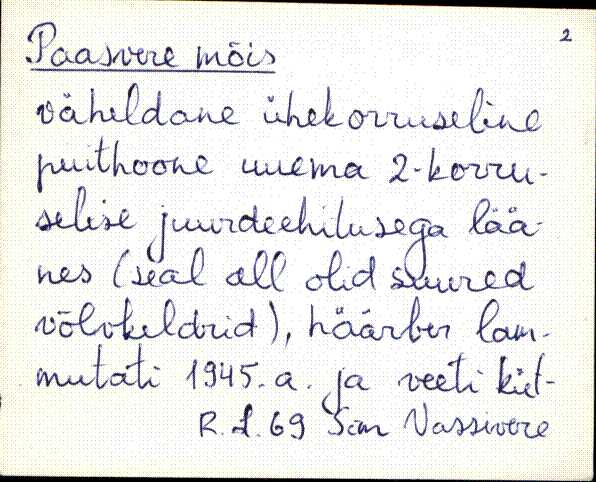 2
Paasvere mõis
väheldane ühekorruseline
puithoone uuema 2-korru-
selise juurdeehitusega lää-
nes (seal all olid suured
võlvkeldrid), häärber lam-
mutati 1945.a. ja veeti küt-
R.L.69 Sim Vassivere